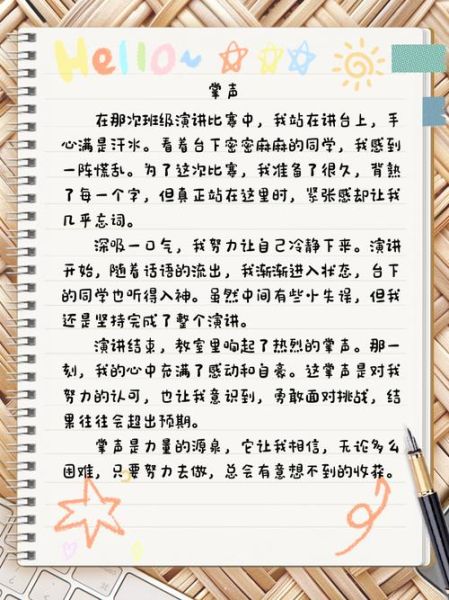 Hello~
掌声
在那次班级演讲比赛中，我站在讲台上，手
心满是汗水。看着台下密密麻麻的同学，我感到
一阵慌乱。为了这次比赛，我准备了很久，背熟
了每一个字，但真正站在这里时，紧张感却让我
几乎忘词。
深吸一口气，我努力让自己冷静下来。演讲
开始，随着话语的流出，我渐渐进入状态，台下
的同学也听得入神。虽然中间有些小失误，但我
还是坚持完成了整个演讲。
演讲结束，教室里响起了热烈的掌声。那一
刻，我的心中充满了感动和自豪。这掌声是对我
努力的认可，也让我意识到，勇敢面对挑战，结
果往往会超出预期。
掌声是力量的源泉，它让我相信，无论多么
困难，只要努力去做，总会有意想不到的收获。